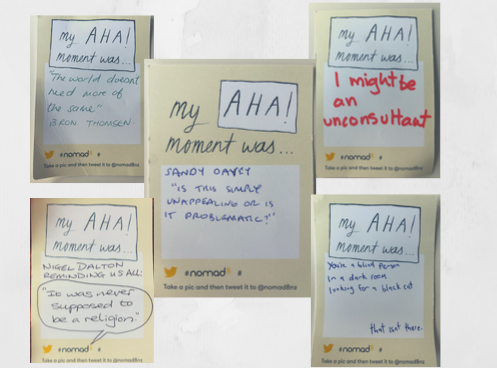 my AHA!
moment was...
"The world doesn't
need more of
the same"
BRON THOMSON.
#nomad8 #
Take a pic and then tweet it to @nomad8ns
my AHA!
moment was...
SANDY
"IS THIS SIMPLY
UNAPPEALING OR IS
IT PROBLEMATIC?"
#nomad8 #
Take a pic and then tweet it to @nomad8ns
my AHA!
moment was...
I might be
an
unconsultant
#nomad8 #
Take a pic and then tweet it to @nomad8ns
my AHA!
moment was...
NIGEL DALTON
REMINDING US ALL:
"It was never
supposed to
be a religion."
#nomad8 #
Take a pic and then tweet it to @nomad8ns
my AHA!
moment was...
You're a blind person
in a dark room
looking for a black cat
that isnt there.
#nomad8 #
Take a pic and then tweet it to @nomad8ns